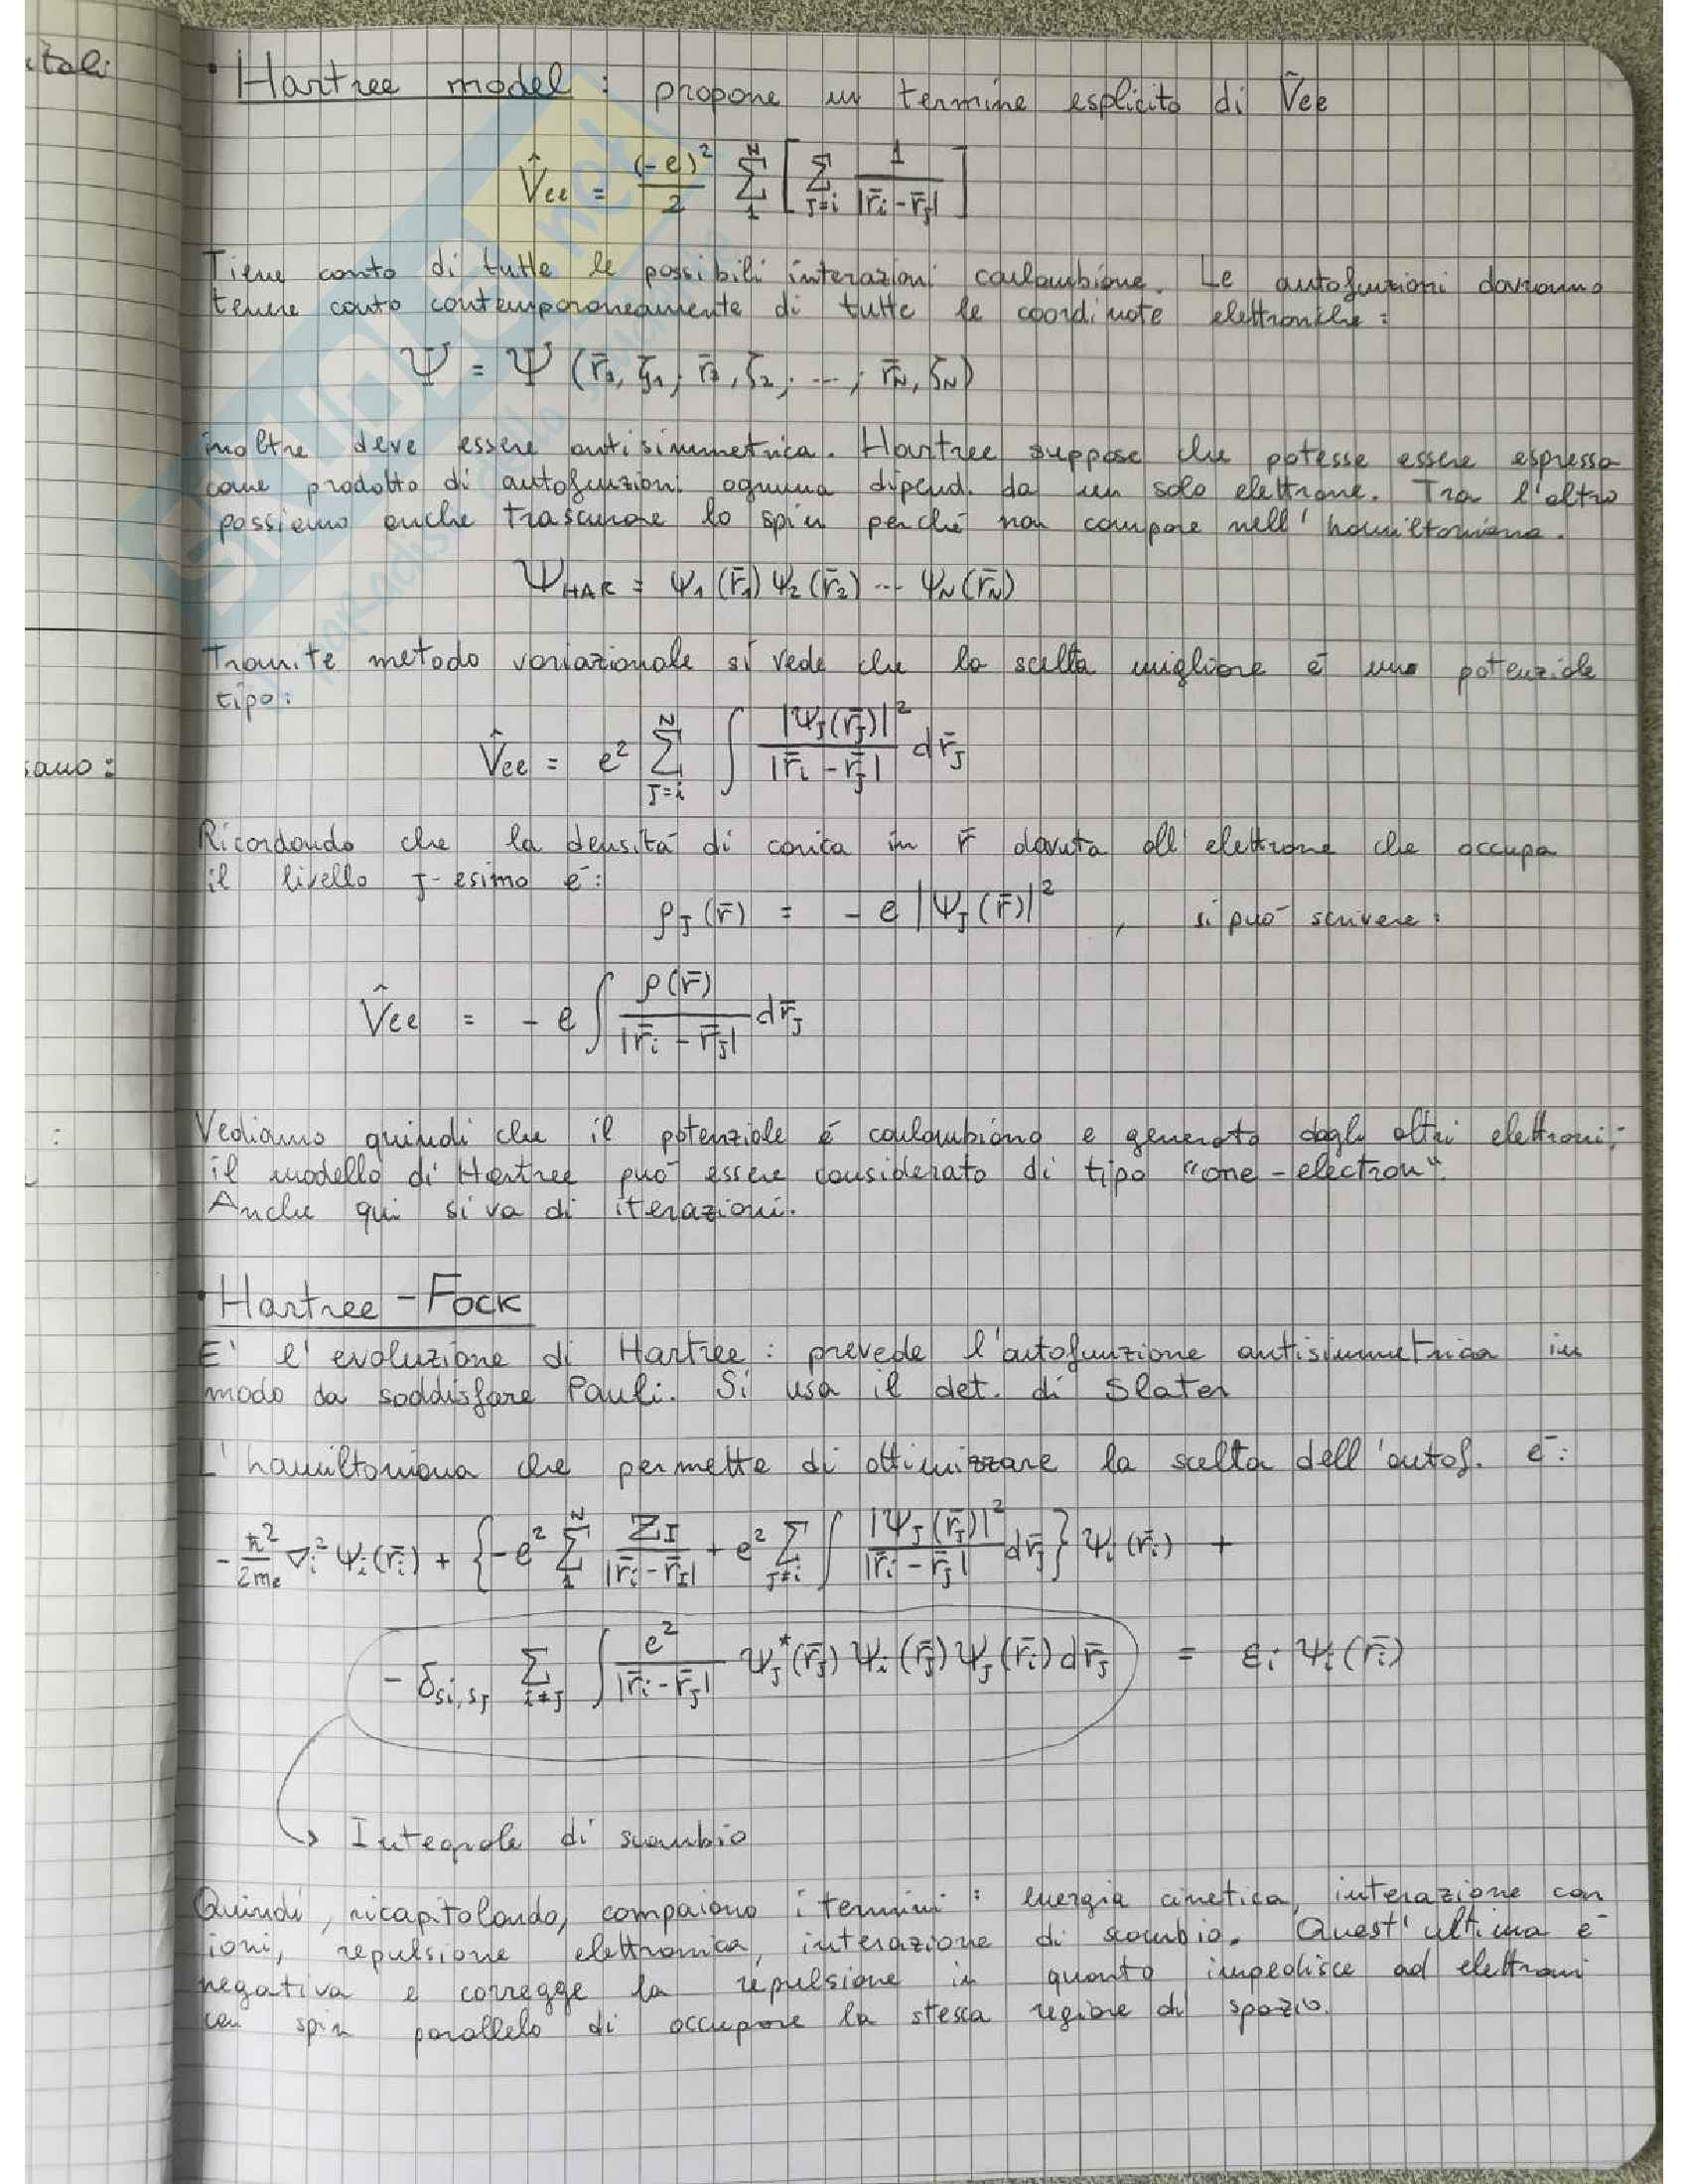 itali
• Hartree model: propone un termine esplicito di V̂ee
V̂ee = (-e)²/2 Σ₁ᴺ [ Σ_{J=i} 1/|r̄i - r̄J| ]
Tiene conto di tutte le possibili interazioni coulombiane. Le autofunzioni dovranno
tenere conto contemporaneamente di tutte le coordinate elettroniche:
Ψ = Ψ (r̄1, ζ1; r̄2, ζ2; ...; r̄N, ζN)
inoltre deve essere antisimmetrica. Hartree suppose che potesse essere espressa
come prodotto di autofunzioni ognuna dipend. da un solo elettrone. Tra l'altro
possiamo anche trascurare lo spin perché non compare nell'hamiltoniana.
Ψ_HAR = ψ1 (r̄1) ψ2 (r̄2) ... ψN (r̄N)
Tramite metodo variazionale si vede che la scelta migliore è un potenziale
tipo:
V̂ee = e² Σ_{J=i}^N ∫ |ψJ(r̄J)|² / |r̄i - r̄J| dr̄J
sano:
Ricordando che la densità di carica in r̄ dovuta all'elettrone che occupa
il livello J-esimo è:
ρJ (r̄) = - e |ψJ (r̄)|² , si può scrivere:
V̂ee = - e ∫ ρ(r̄) / |r̄i - r̄J| dr̄J
:
Vediamo quindi che il potenziale è coulombiano e generato dagli altri elettroni;
il modello di Hartree può essere considerato di tipo "one-electron".
Anche qui si va di iterazioni.
• Hartree - Fock
E' l'evoluzione di Hartree: prevede l'autofunzione antisimmetrica in
modo da soddisfare Pauli. Si usa il det. di Slater
L'hamiltoniana che permette di ottimizzare la scelta dell'autof. è:
- ħ²/2me ∇i² ψi(r̄i) + { -e² Σ₁ᴺ ZI/|r̄i - r̄I| + e² Σ_{J≠i} ∫ |ψJ(r̄J)|²/|r̄i - r̄J| dr̄J } ψi (r̄i) +
- δsi,sJ Σ_{i≠J} ∫ e²/|r̄i - r̄J| ψJ*(r̄J) ψi (r̄J) ψJ (r̄i) dr̄J = εi ψi (r̄i)
↳ Integrale di scambio
Quindi, ricapitolando, compaiono i termini: energia cinetica, interazione con
ioni, repulsione elettronica, interazione di scambio. Quest'ultima è
negativa e corregge la repulsione in quanto impedisce ad elettroni
con spin parallelo di occupare la stessa regione di spazio.